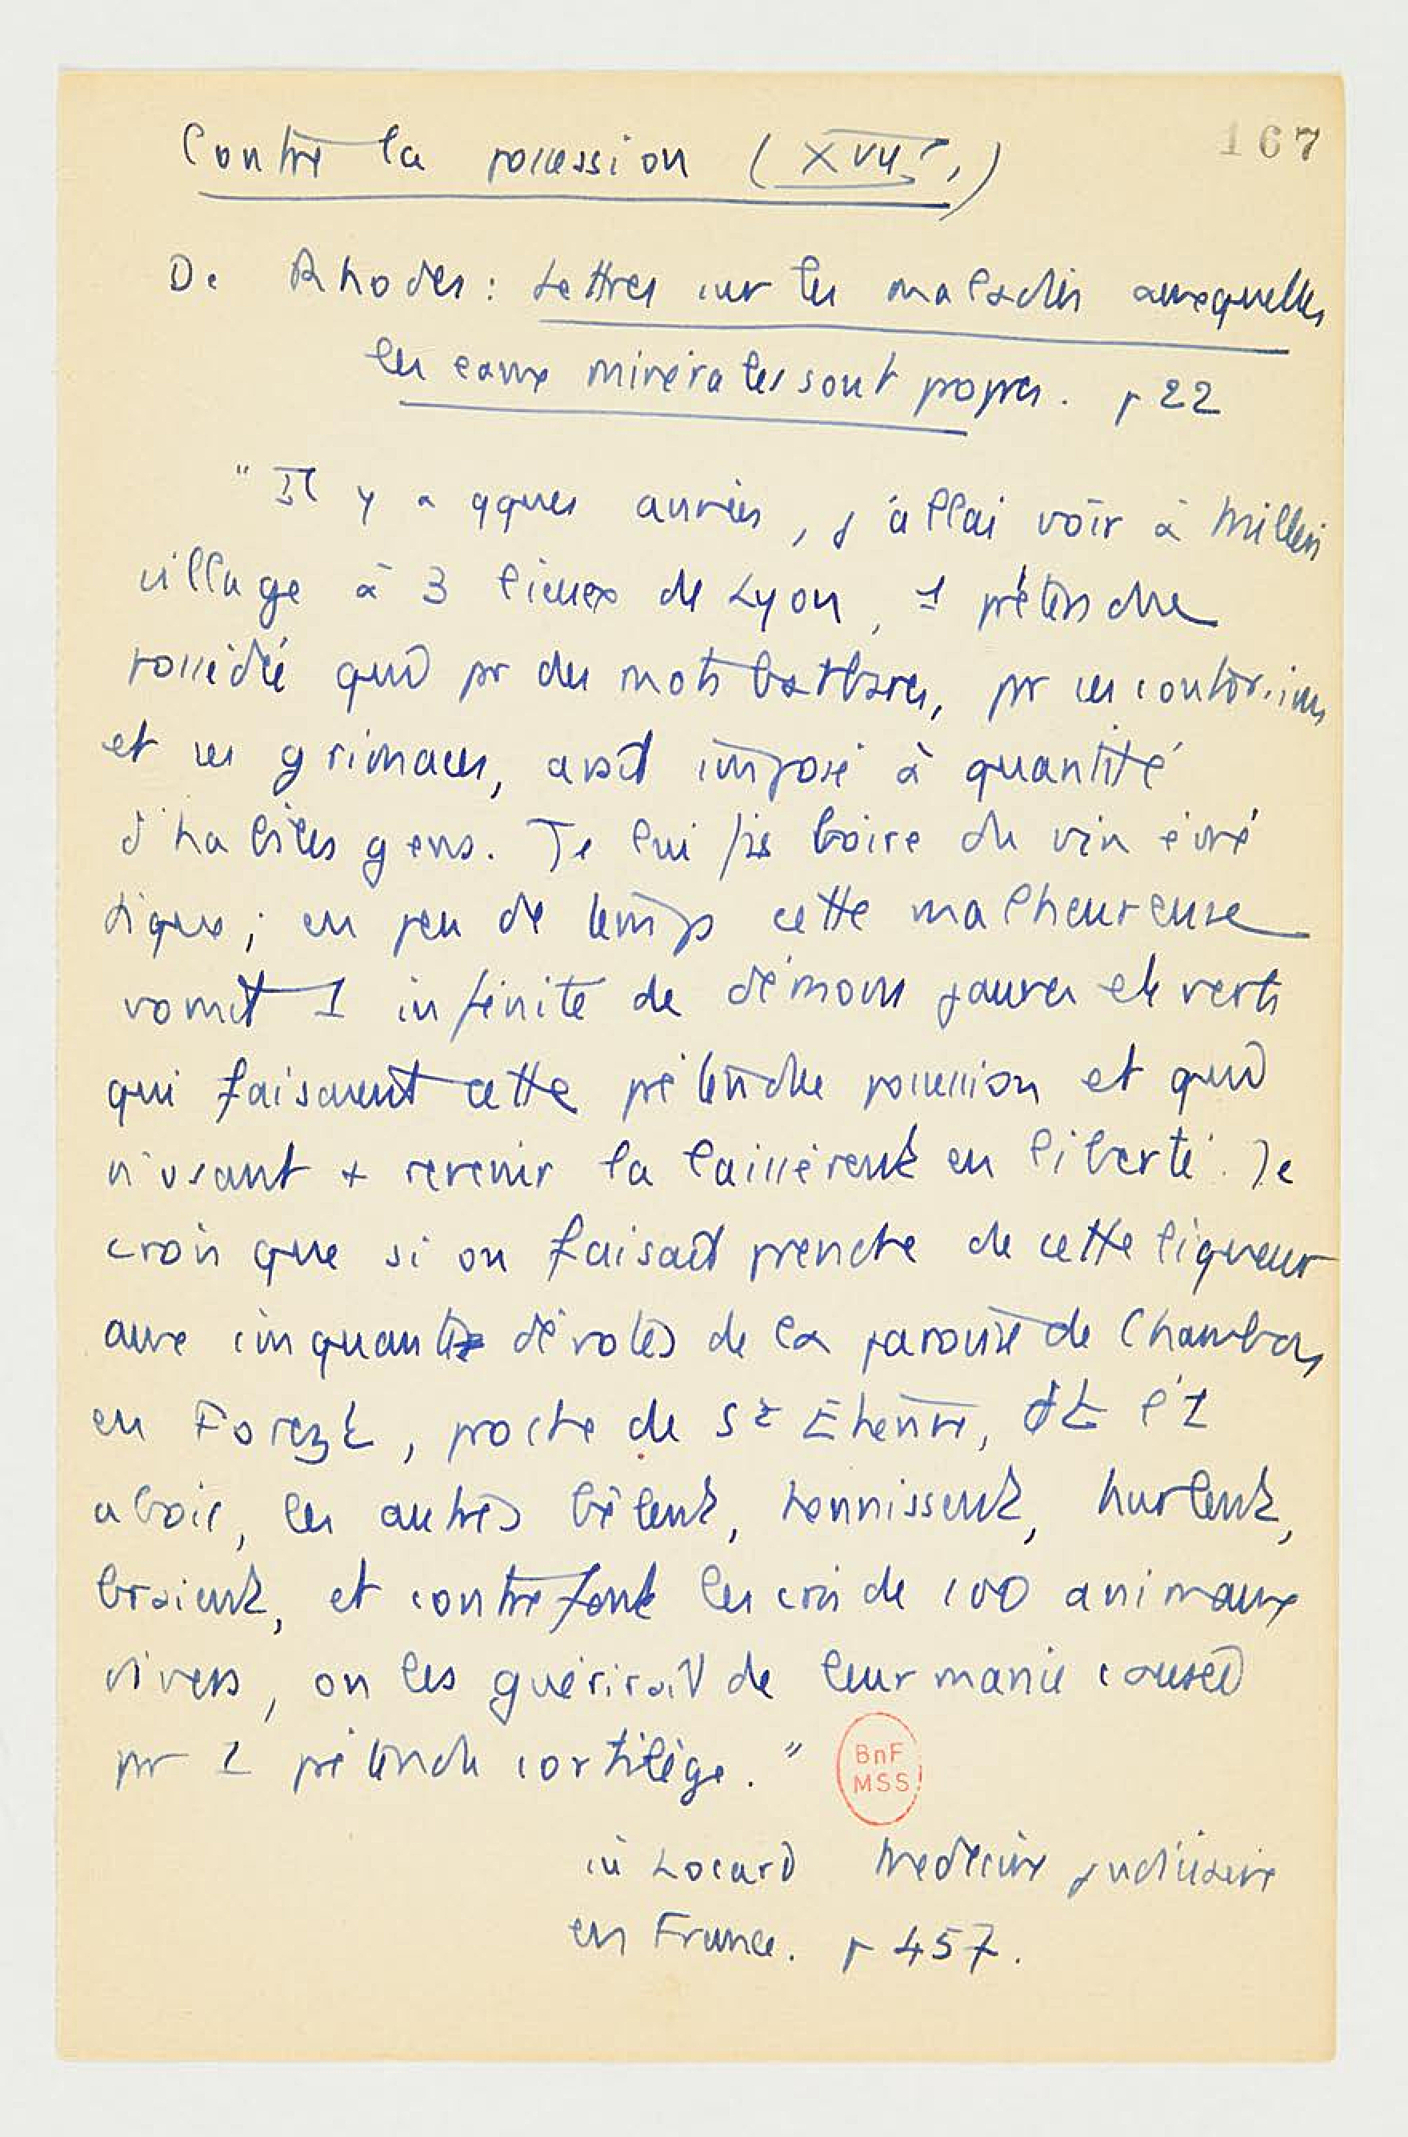 167
Contre la possession (XVIIe s.)
De Rhodes : Lettres sur les maladies auxquelles
les eaux minérales sont propres. p 22
" Il y a qques années, j'allai voir à Millery
village à 3 lieues de Lyon, 1 prétendue
possédée qui pr des mots barbares, pr ses contorsions
et ses grimaces, avait imposé à quantité
d'habiles gens. Je lui fis boire du vin émé
tique ; en peu de temps cette malheureuse
vomit 1 infinité de démons jaunes et verts
qui faisaient cette prétendue possession et qui
n'osant + revenir la laissèrent en liberté. Je
crois que si on faisait prendre de cette liqueur
aux cinquante dévotes de la paroisse de Chambon
en Forez, proche de St Etienne, dt l'1
aboie, les autres bêlent, hennissent, hurlent,
braient, et contrefont les cris de 100 animaux
divers, on les guérirait de leur manie causée
pr 1 prétendu sortilège. "
BnF
MSS
in Locard Médecine judiciaire
en France. p 457.